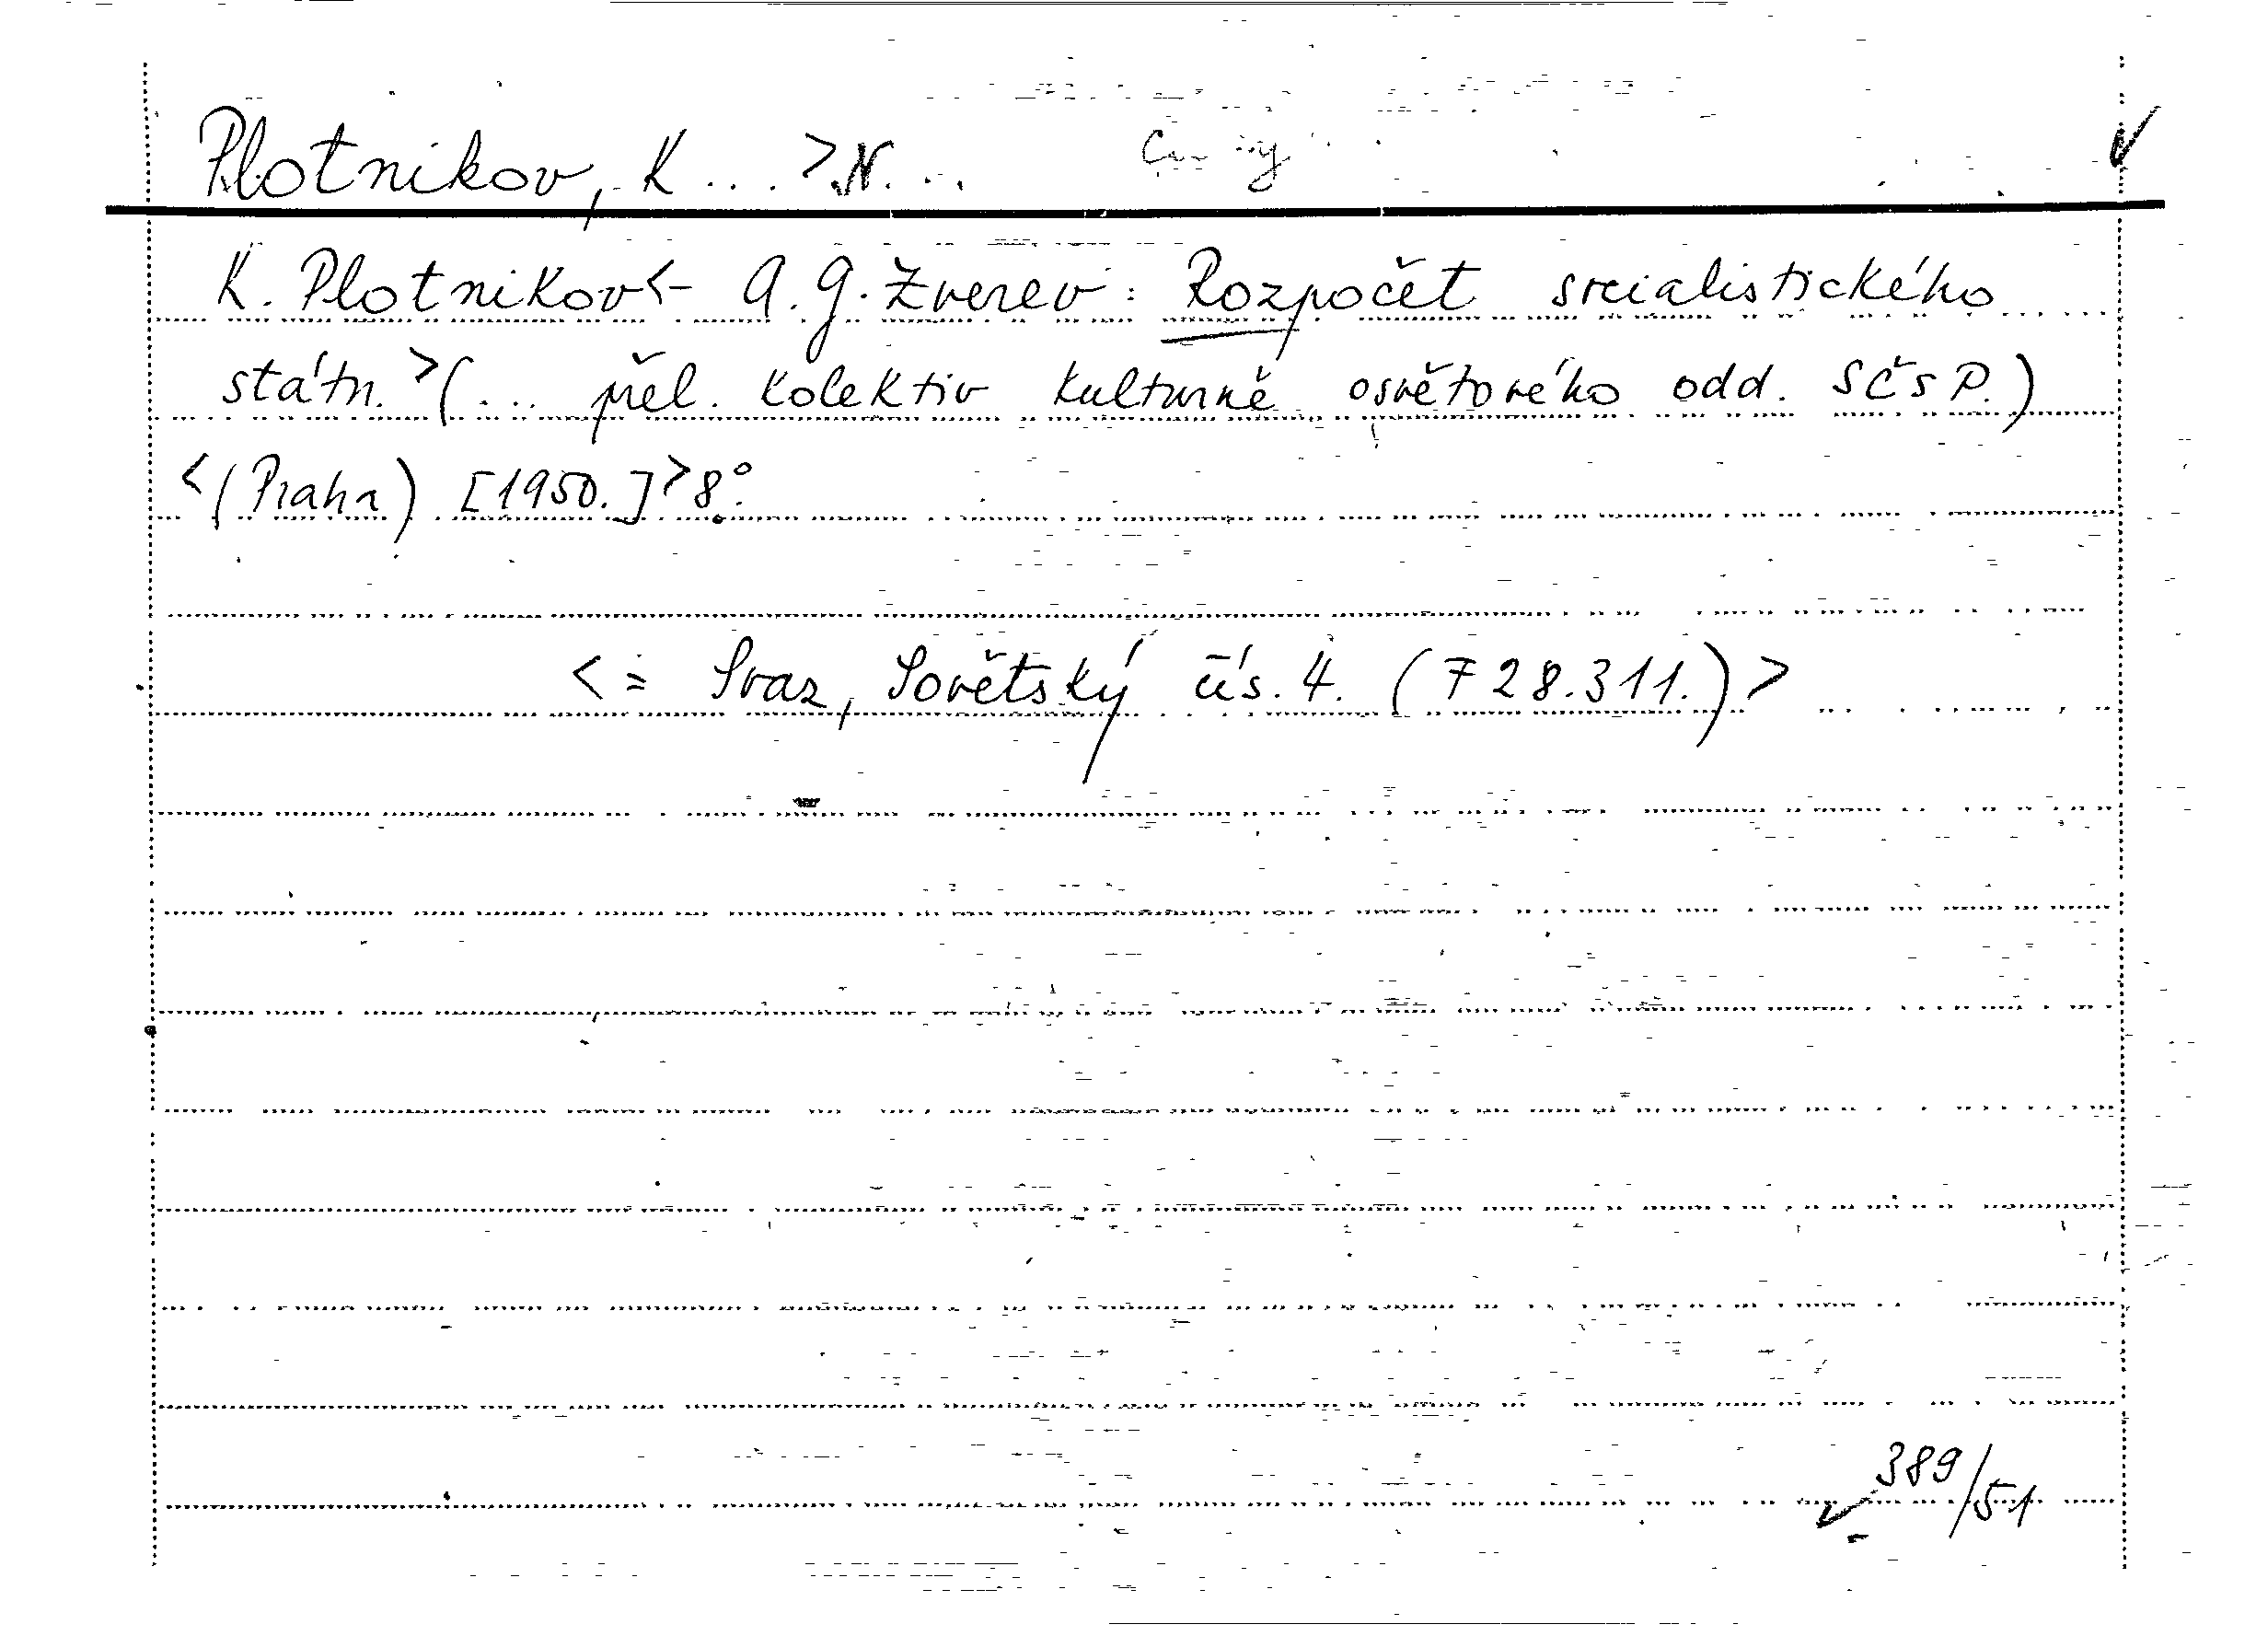 Plotnikov, K ... > N. ...
K. Plotnikov <- A. G. Zverev: Rozpočet socialistického
státu. > (... přel. kolektiv kulturně osvětového odd. SČSP.)
<(Praha) [1950.] > 8°.
< = Svaz, Sovětský čís. 4. (728.311.) >
389/51